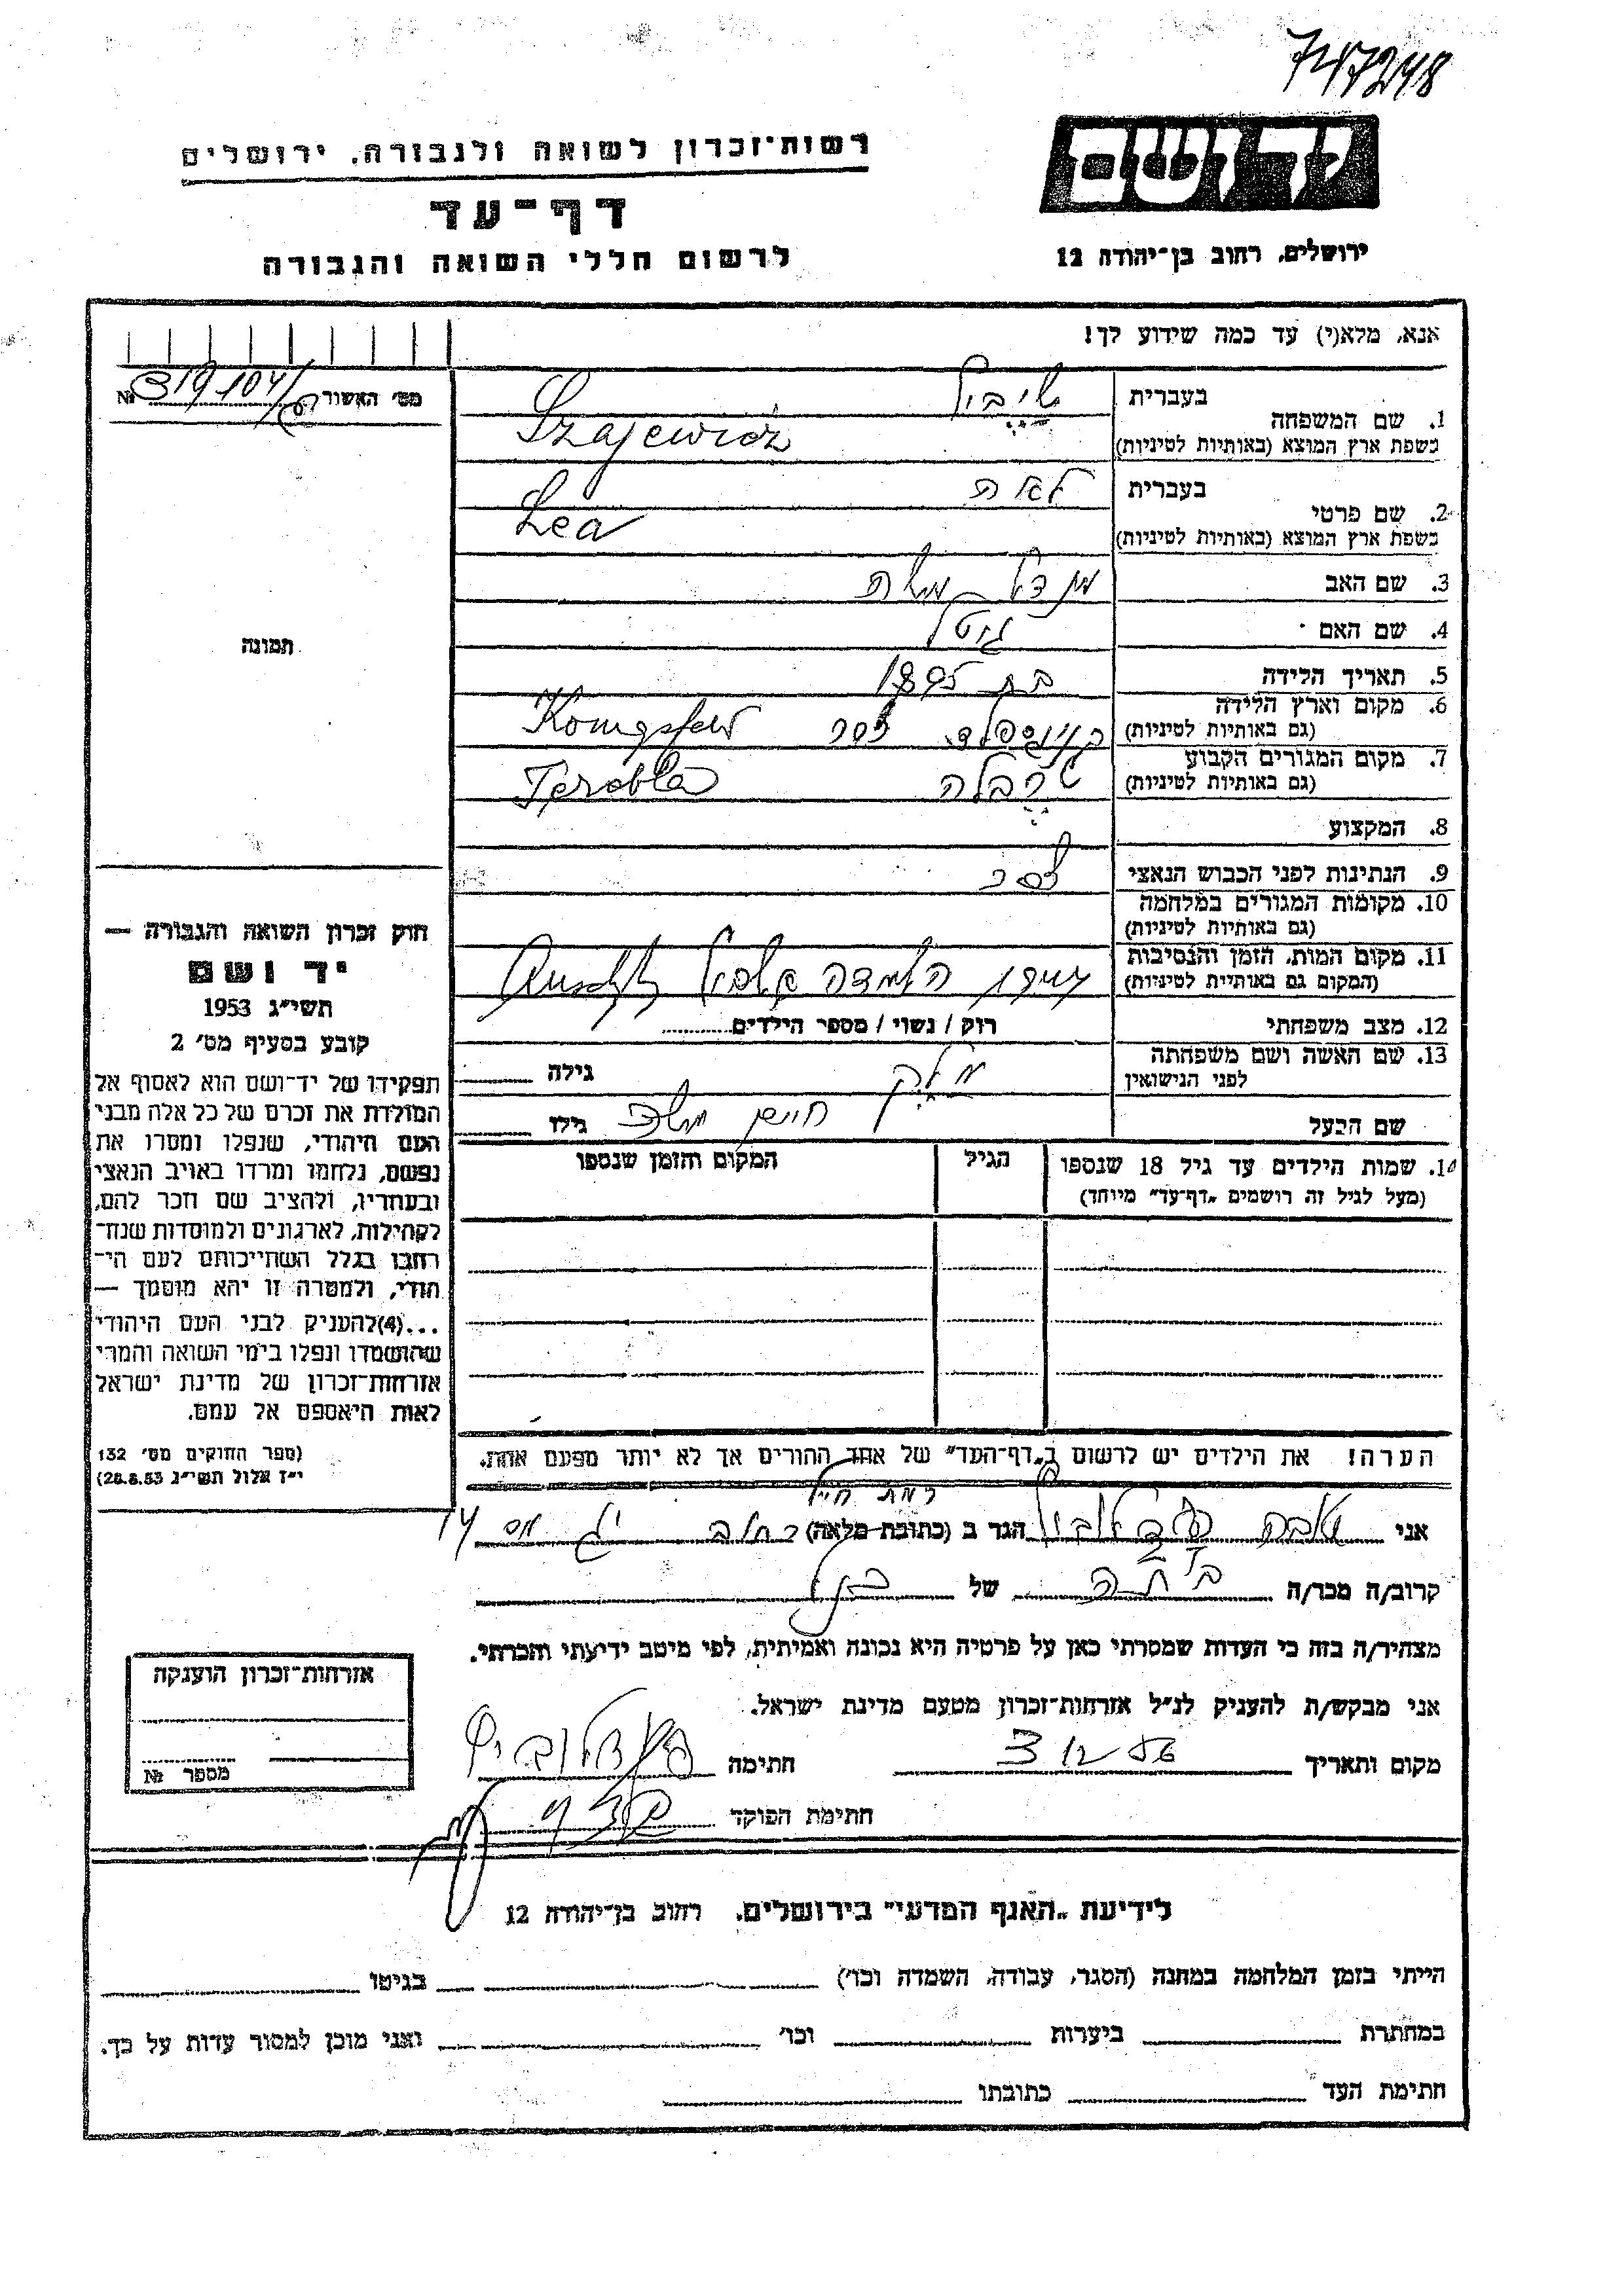 747248
רשות־זכרון לשואה ולגבורה, ירושלים
ידושם
דף־עד
ירושלים, רחוב בן־יהודה 12
לרשום חללי השואה והגבורה
אנא, מלא(י) עד כמה שידוע לך!
מס׳ האשור № 319104/
1. שם המשפחה
בעברית
בשפת ארץ המוצא (באותיות לטיניות)
Szajewicz
2. שם פרטי
בעברית לאה
בשפת ארץ המוצא (באותיות לטיניות)
Lea
3. שם האב מנדל משה
4. שם האם גיטל
5. תאריך הלידה
6. מקום וארץ הלידה
(גם באותיות לטיניות) Königsfeld
7. מקום המגורים הקבוע
(גם באותיות לטיניות) טרבלה Terebla
8. המקצוע
9. הנתינות לפני הכבוש הנאצי
10. מקומות המגורים במלחמה
(גם באותיות לטיניות)
11. מקום המות, הזמן והנסיבות
(המקום גם באותיות לטיניות)
12. מצב משפחתי רוק / נשוי / מספר הילדים
13. שם האשה ושם משפחתה
לפני הנישואין גילה
שם הבעל חיים משה גילו
14. שמות הילדים עד גיל 18 שנספו הגיל המקום והזמן שנספו
(מעל לגיל זה רושמים „דף־עד” מיוחד)
תמונה
חוק זכרון השואה והגבורה —
יד ושם
תשי״ג 1953
קובע בסעיף מס׳ 2
תפקידו של יד־ושם הוא לאסוף אל
המולדת את זכרם של כל אלה מבני
העם היהודי, שנפלו ומסרו את
נפשם, נלחמו ומרדו באויב הנאצי
ובעוזריו, ולהציב שם וזכר להם,
לקהילות, לארגונים ולמוסדות שנח־
רחבו בגלל השתייכותם לעם הי־
הודי, ולמטרה זו יהא מוסמך —
...(4)להעניק לבני העם היהודי
שהושמדו ונפלו בימי השואה והמרי
אזרחות־זכרון של מדינת ישראל
לאות היאספם אל עמם.
(ספר החוקים מס׳ 132
י״ז אלול תשי״ג 28.8.53)
הערה! את הילדים יש לרשום ב„דף־העד” של אחד ההורים אך לא יותר מפעם אחת.
אני הגר ב (כתובת מלאה) 14
קרוב/ה מכר/ה של
מצהיר/ה בזה כי העדות שמסרתי כאן על פרטיה היא נכונה ואמיתית, לפי מיטב ידיעתי והכרתי.
אני מבקש/ת להעניק לנ״ל אזרחות־זכרון מטעם מדינת ישראל.
מקום ותאריך 3 12 56 חתימה
חתימת הפוקד
אזרחות־זכרון הוענקה
מספר №
לידיעת „האגף המדעי” בירושלים, רחוב בן־יהודה 12
הייתי בזמן המלחמה במחנה (הסגר, עבודה, השמדה וכו׳) בגיטו
במחתרת ביערות וכו׳ ואני מוכן למסור עדות על כך.
חתימת העד כתובתו